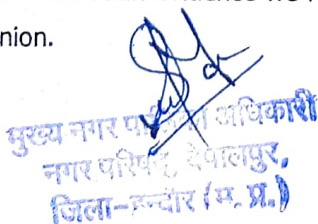 nion.
मुख्य नगर अधिकारी
नगर परिषद, देपालपुर,
जिला-इन्दौर (म. प्र.)